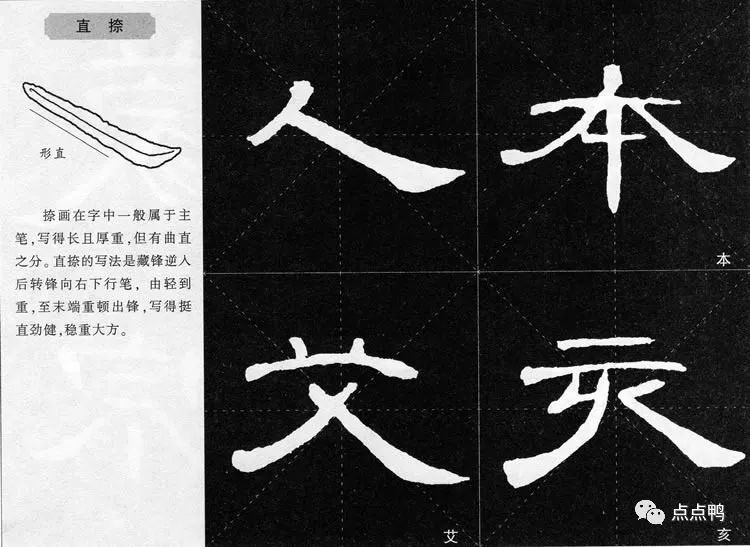 直捺
形直
捺画在字中一般属于主
笔,写得长且厚重,但有曲直
之分。直捺的写法是藏锋逆入
后转锋向右下行笔,由轻到
重,至末端重顿出锋,写得挺
直劲健,稳重大方。
人
本
本
艾
艾
亥
亥
点点鸭